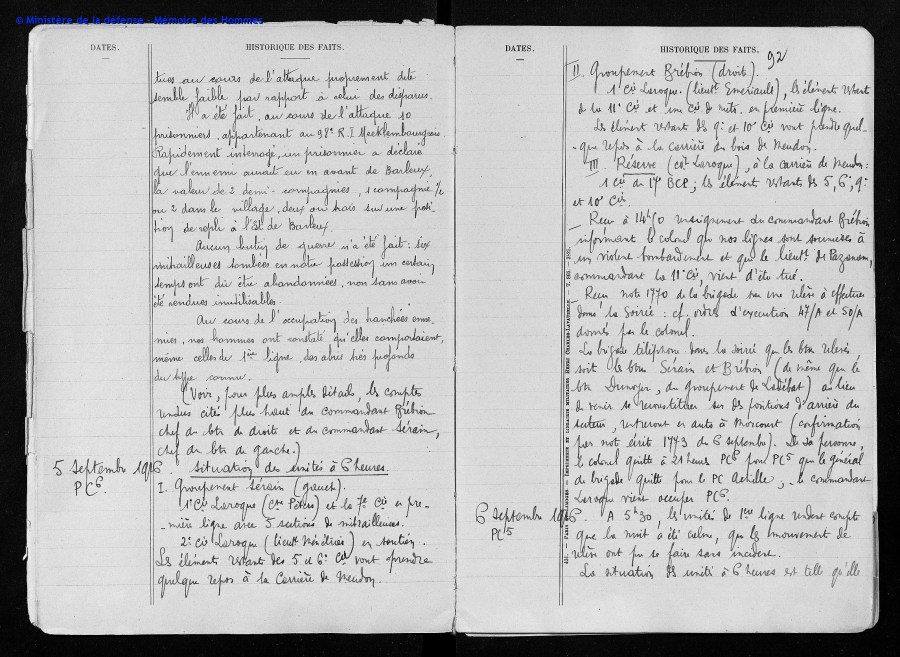 © Ministère de la défense - Mémoire des Hommes
DATES.
HISTORIQUE DES FAITS.
tués au cours de l'attaque proprement dite
semble faible par rapport à celui des disparus.
Il a été fait, au cours de l'attaque 10
prisonniers, appartenant au 98e R.I Mecklembourgeois.
Rapidement interrogé, un prisonnier a déclaré
que l'ennemi aurait eu en avant de Barleux,
la valeur de 2 demi-compagnies, 1 compagnie ½
ou 2 dans le village, deux ou trois sur une posi-
tion de repli à l'Est de Barleux.
Aucun butin de guerre n'a été fait : six
mitrailleuses tombées en notre possession un certain
temps ont dû être abandonnées, non sans avoir
été rendues inutilisables.
Au cours de l'occupation des tranchées enne-
mies, nos hommes ont constaté qu'elles comportaient,
même celles de 1ère ligne, des abris très profonds
du type connu.
(Voir, pour plus amples détails, les comptes
rendus cités plus haut du commandant Brébion
chef du btn de droite et du commandant Sérain,
chef du btn de gauche.)
5 Septembre 1916.
PC6.
Situation des unités à 6 heures.
I. Groupement Sérain (gauche).
1e Cie Laroque (Cne Pétus) et la 7e Cie en pre-
-mière ligne avec 5 sections de mitrailleuses.
2e Cie Laroque (lieutt) en soutien.
Les éléments restants des 5 et 6e Cies vont prendre
quelque repos à la Carrière de Meudon.
DATES.
HISTORIQUE DES FAITS.
92
II. Groupement Brébion (droit).
1e Cie Laroque. (lieutt Emériault), les éléments restant
de la 11e Cie et un Cie de mits. en première ligne.
Les éléments restant des 9e et 10e Cies vont prendre quel-
-que repos à la Carrière du bois de Meudon.
III. Réserve (cdt Laroque), à la carrière de Meudon :
1 Cie du 17e BCP ; les éléments restants des 5, 6, 9e
et 10e Cies.
Reçu à 14h10 renseignement du commandant Brébion
informant le colonel que nos lignes sont soumises à
un violent bombardement et que le lieutt de Pazanan,
commandant la 11e Cie vient d'être tué.
Reçu note 1770 de la brigade sur une relève à effectuer
dans la Soirée : cf. ordres d'exécution 47/A et 50/A
donnés par le colonel.
La brigade téléphone dans la soirée que les btns relevés,
soit les btns Sérain et Brébion (de même que le
btn, du groupement de Ladébat) au lieu
de venir se reconstituer sur des positions d'arrière du
secteur, rentreront en auto à Morcourt (confirmation
par note écrit 1773 du 6 septembre). De sa personne,
le colonel quitte à 21 heures PC6 pour PC5 que le général
de brigade quitte pour le PC Achille ; le commandant
Laroque vient occuper PC6.
6 Septembre 1916.
PC5
A 5h30 les unités de 1ère ligne rendent compte
que la nuit a été calme, que le mouvement de
relève ont pu se faire sans incident.
La situation des unités à 6 heures est telle qu'elle